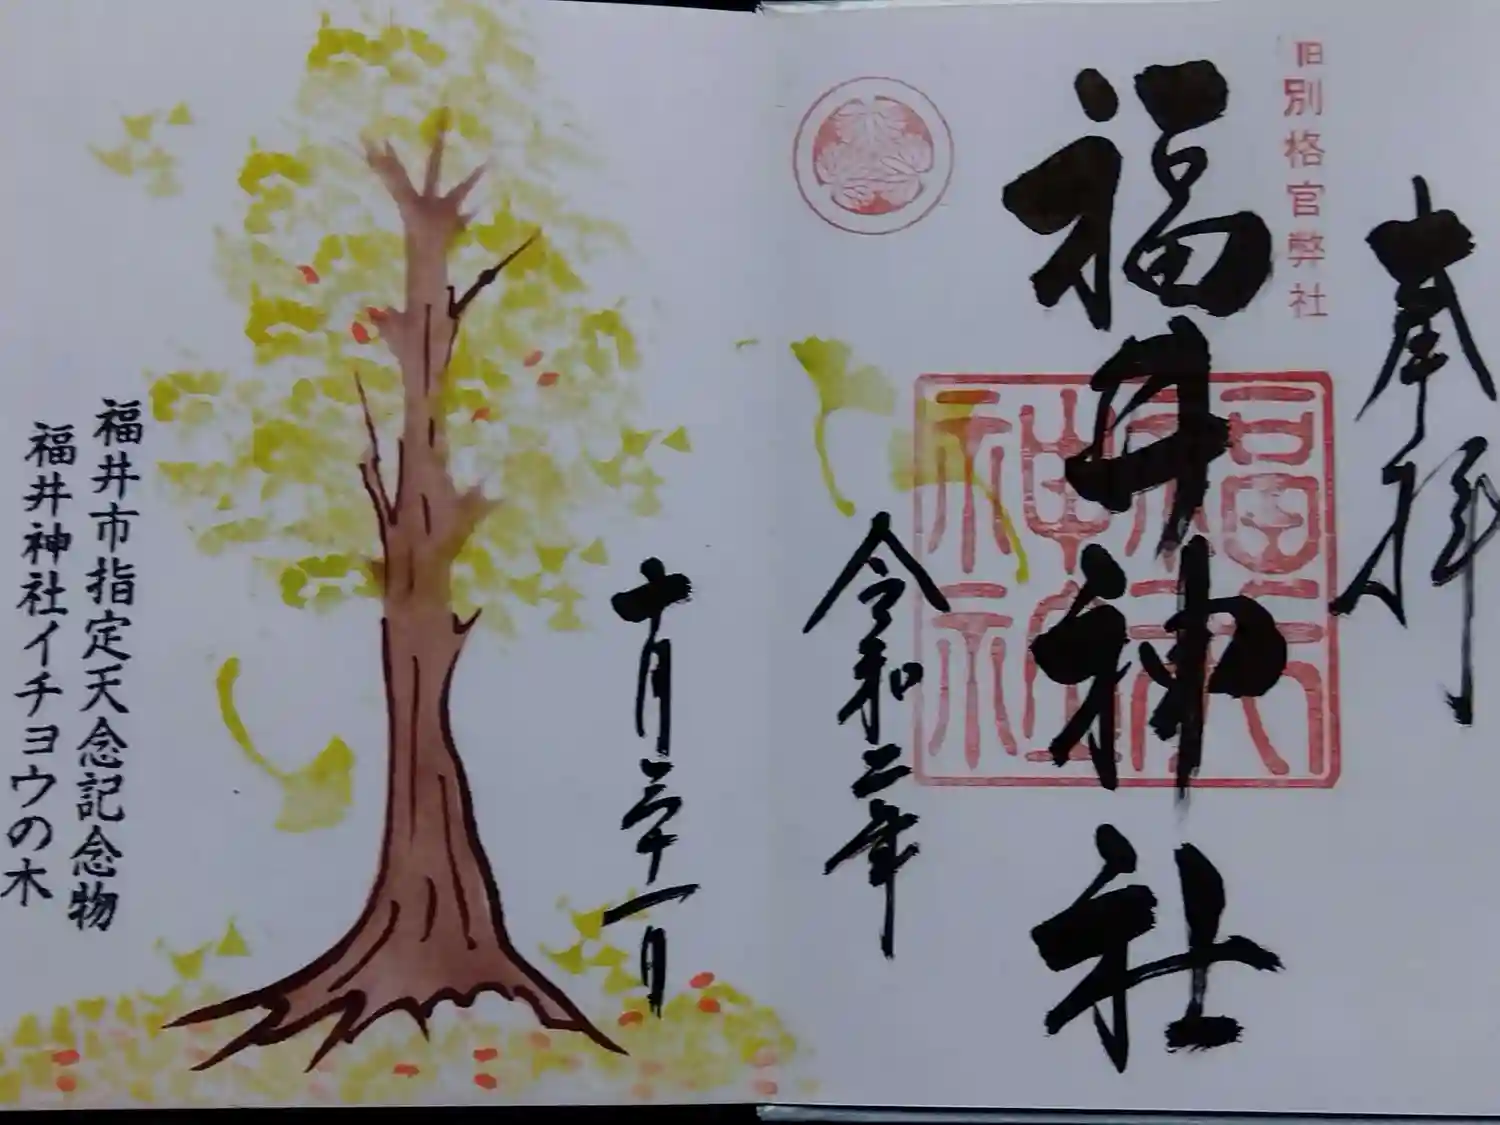 奉拝
旧別格官弊社
福井神社
福井神社
令和二年
十月三十一日
福井市指定天念記念物
福井神社イチョウの木